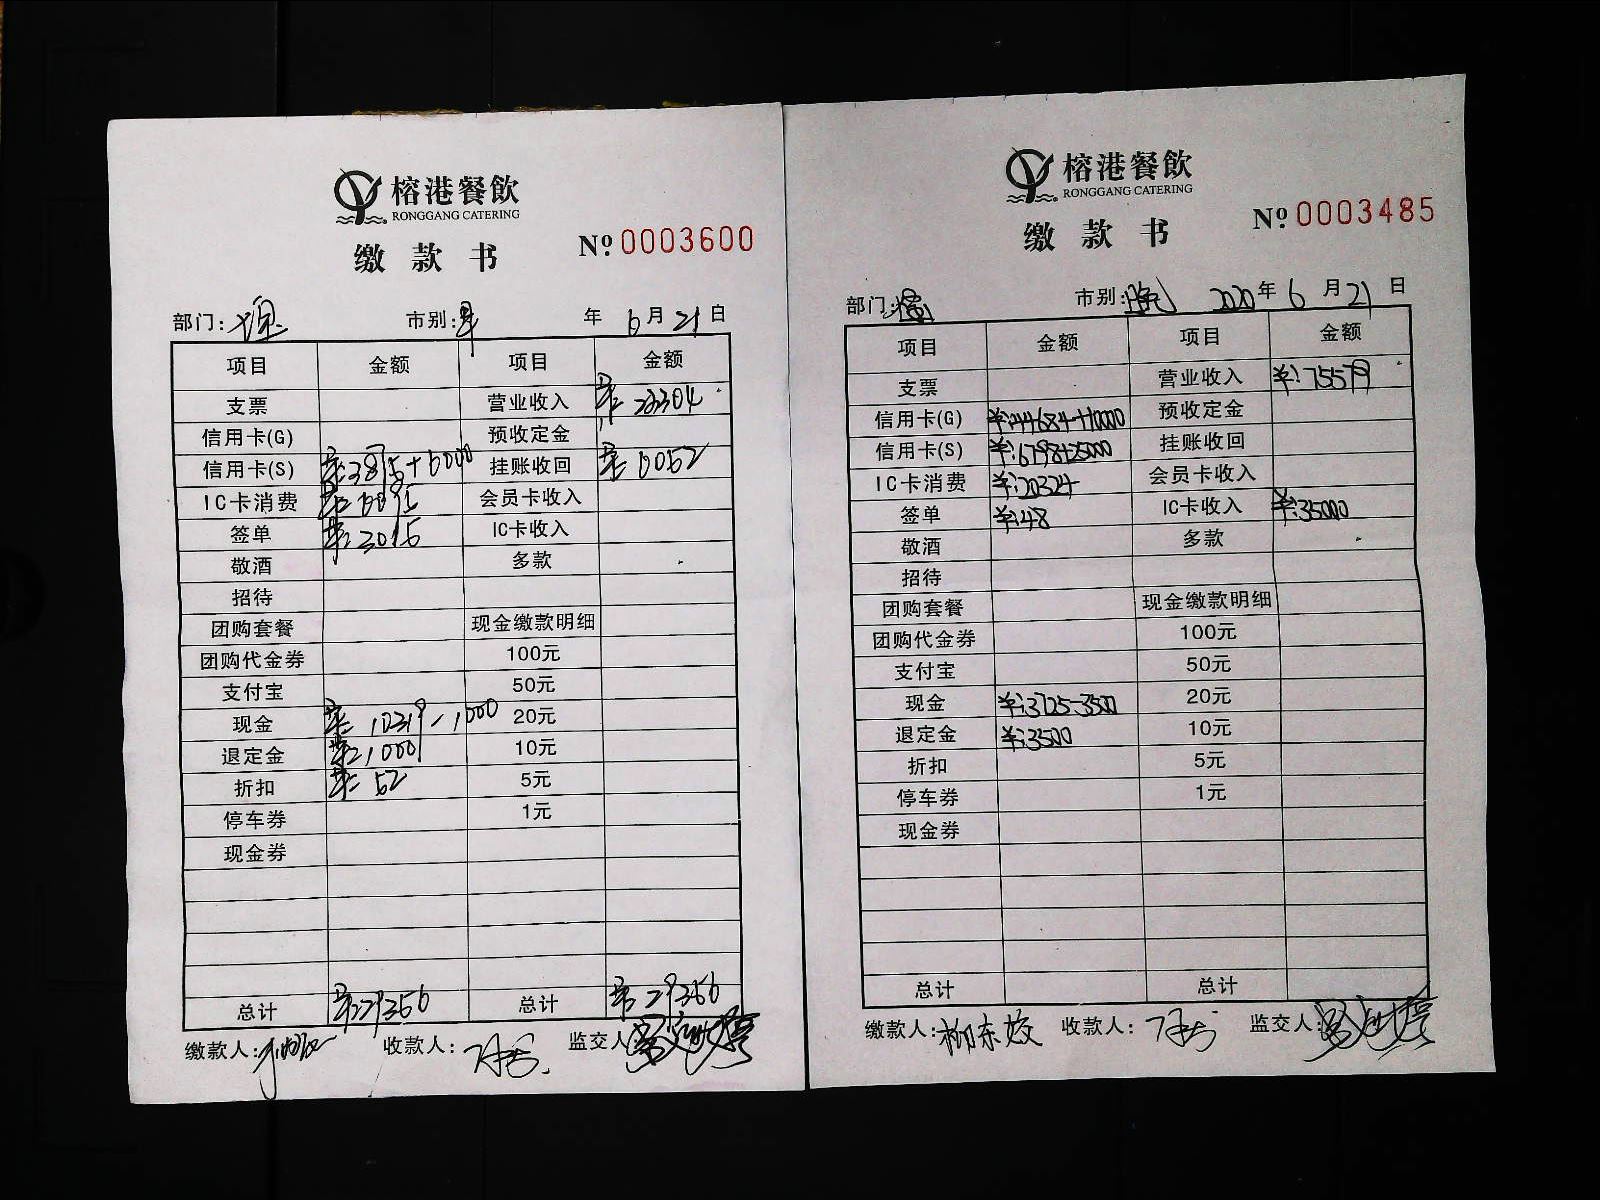 榕港餐飲
RONGGANG CATERING
缴款书
№ 0003600
部门: 市别:早 年 6月21日
项目 金额 项目 金额
支票 营业收入 ¥:23304
信用卡(G) 预收定金
信用卡(S) ¥:3875+6000 挂账收回 ¥:6052
IC卡消费 会员卡收入
签单 ¥:3015 IC卡收入
敬酒 多款
招待
团购套餐 现金缴款明细
团购代金券 100元
支付宝 50元
现金 ¥:10319-1000 20元
退定金 ¥:1000 10元
折扣 ¥:52 5元
停车券 1元
现金券
总计 ¥:29356 总计 ¥:29356
缴款人: 收款人: 监交人
榕港餐飲
RONGGANG CATERING
缴款书
№ 0003485
部门: 市别:晚 2020年6月21日
项目 金额 项目 金额
支票 营业收入 ¥:75579
信用卡(G) ¥:44684+10000 预收定金
信用卡(S) ¥:6798+25000 挂账收回
IC卡消费 ¥:20324 会员卡收入
签单 ¥:48 IC卡收入 ¥:35000
敬酒 多款
招待
团购套餐 现金缴款明细
团购代金券 100元
支付宝 50元
现金 ¥:3725-3500 20元
退定金 ¥:3500 10元
折扣 5元
停车券 1元
现金券
总计 总计
缴款人:柳东姣 收款人: 监交人: